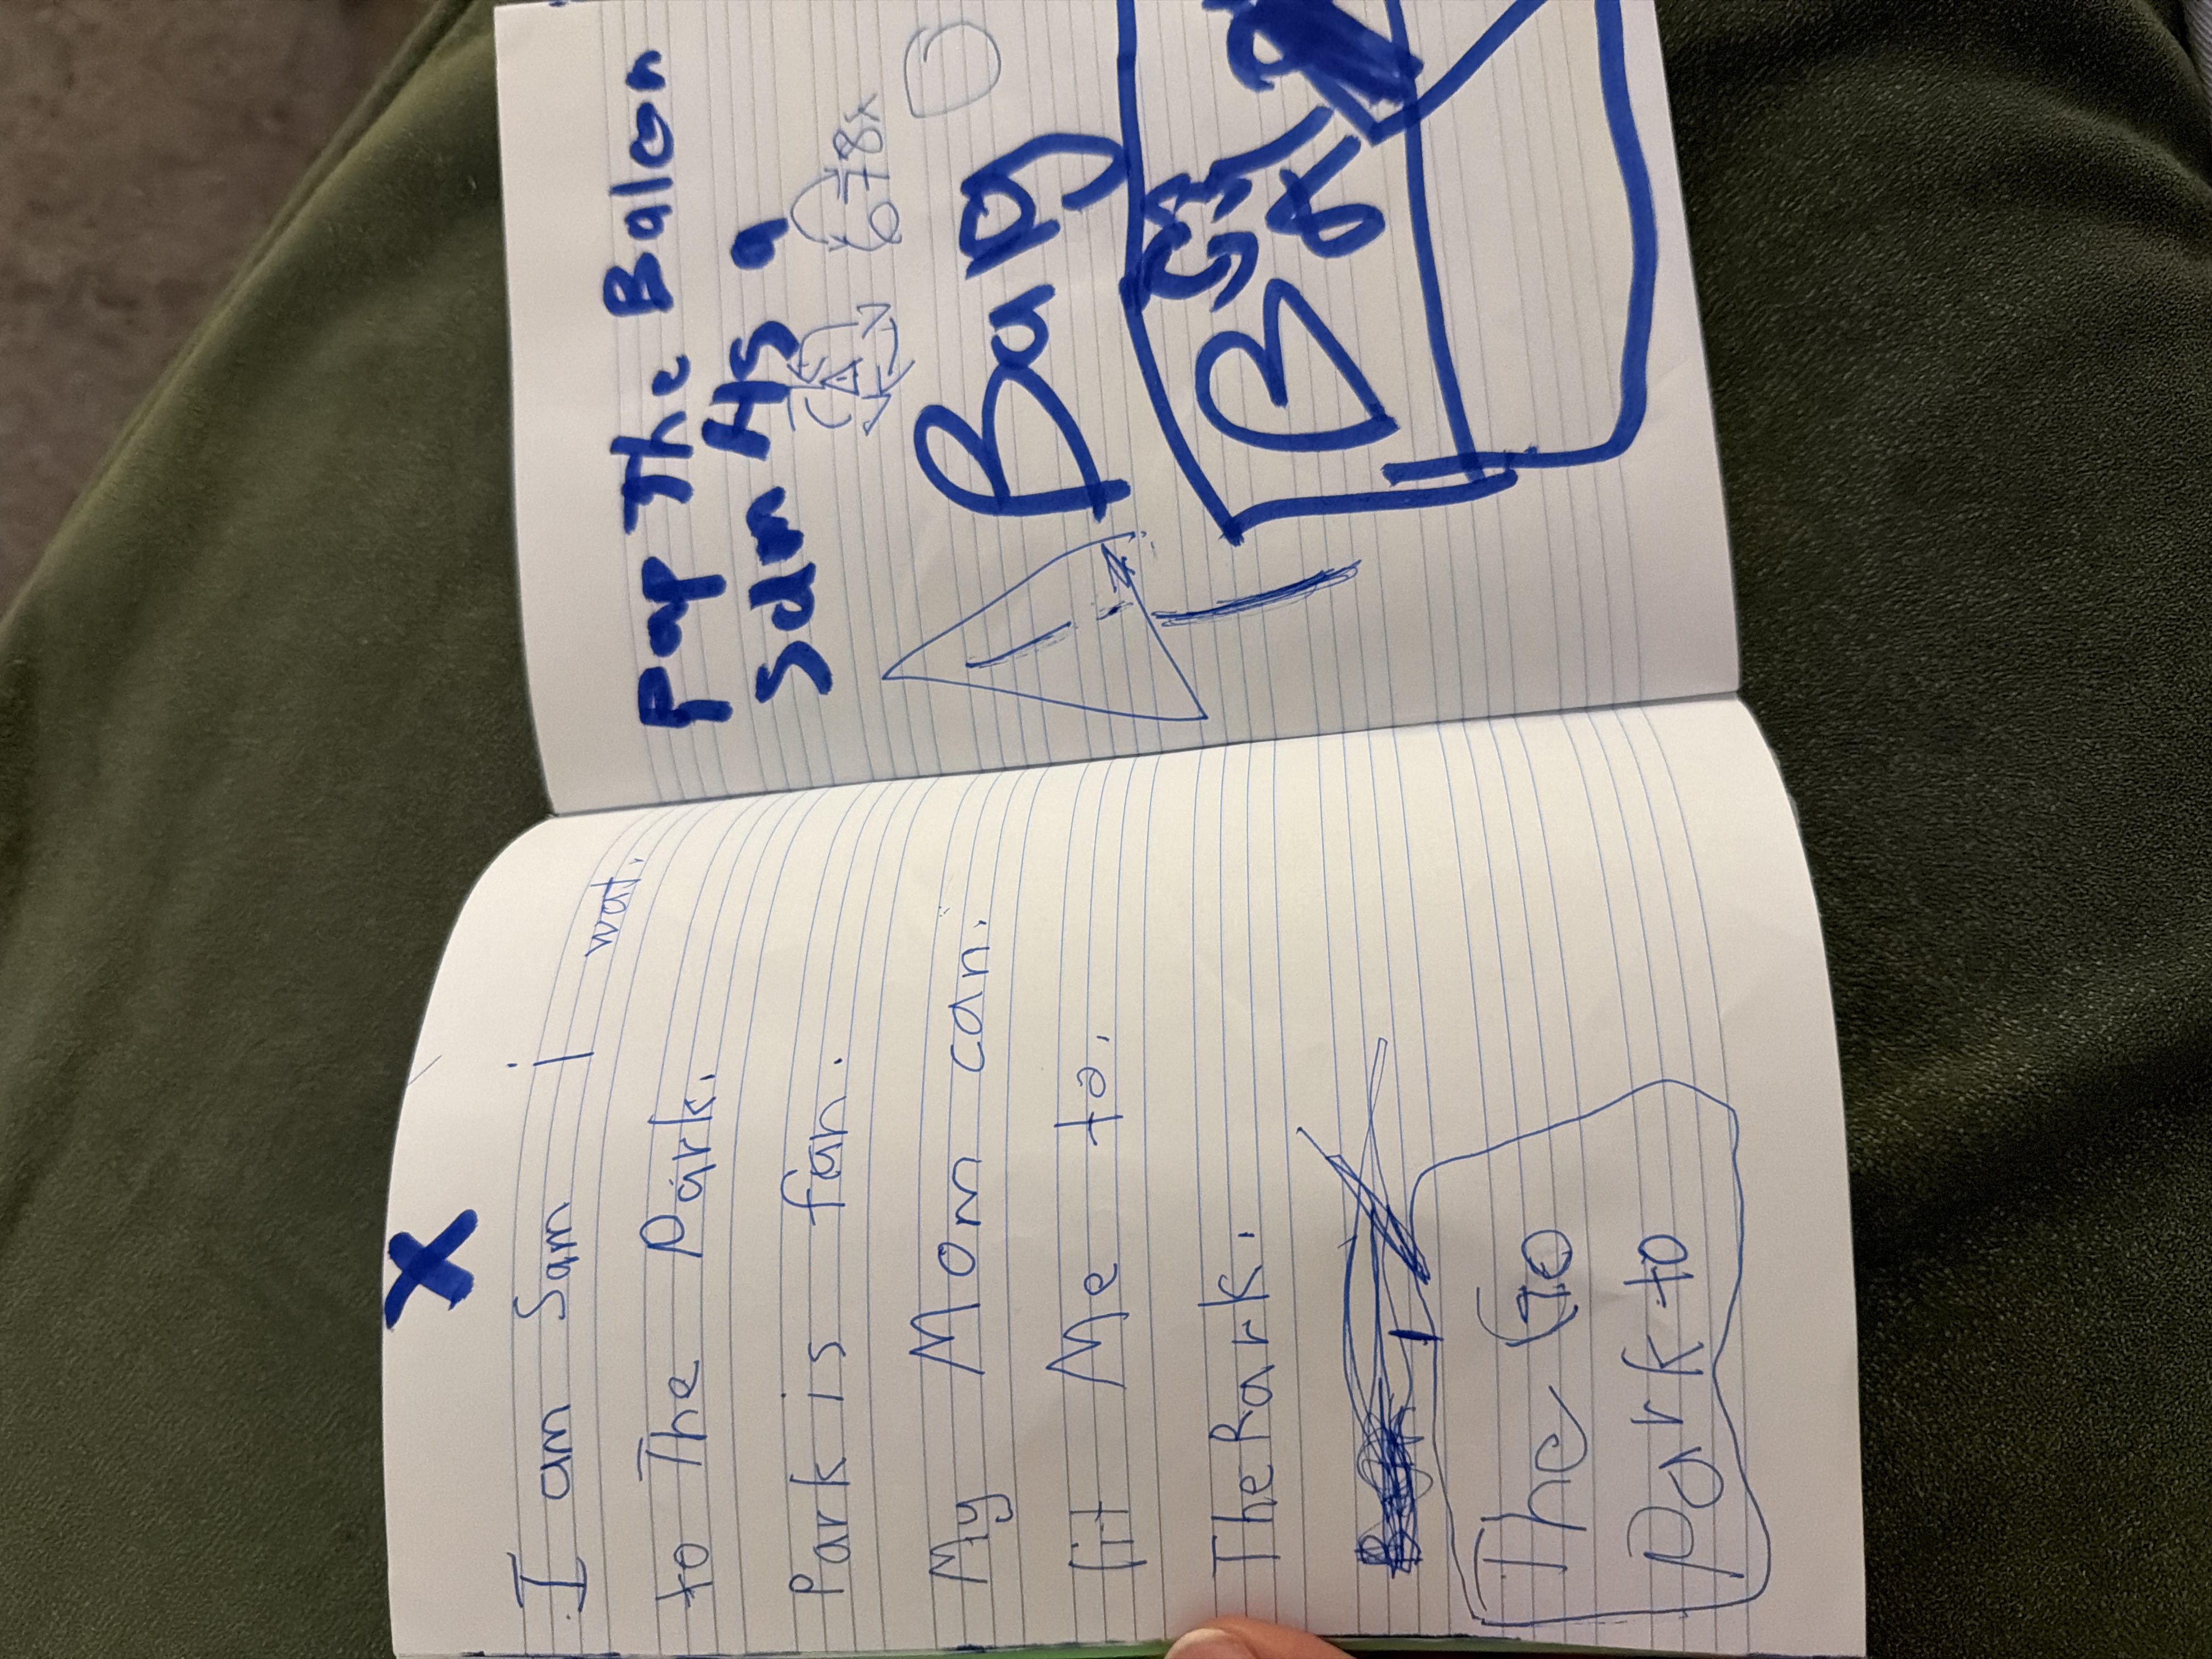 X
I am Sam i
wat.
to The Park.
Park is fan.
My Mom can.
lit Me to.
The Park.
The Go
Park to
Pop The Balon
Sam Has a
678x
Bug
B